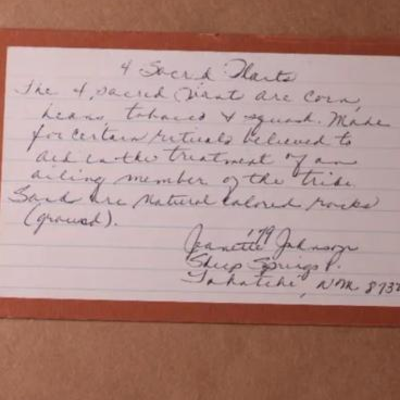 4 Sacred Plants
The 4 sacred plant are corn,
beans, tobacco & squash. Made
for certain rituals believed to
aid in the treatment of an
ailing member of the tribe.
Sand are natural colored rocks
(ground).
'79
Jeanette Johnson
Sheep Springs
Tohatchi, NM 8732